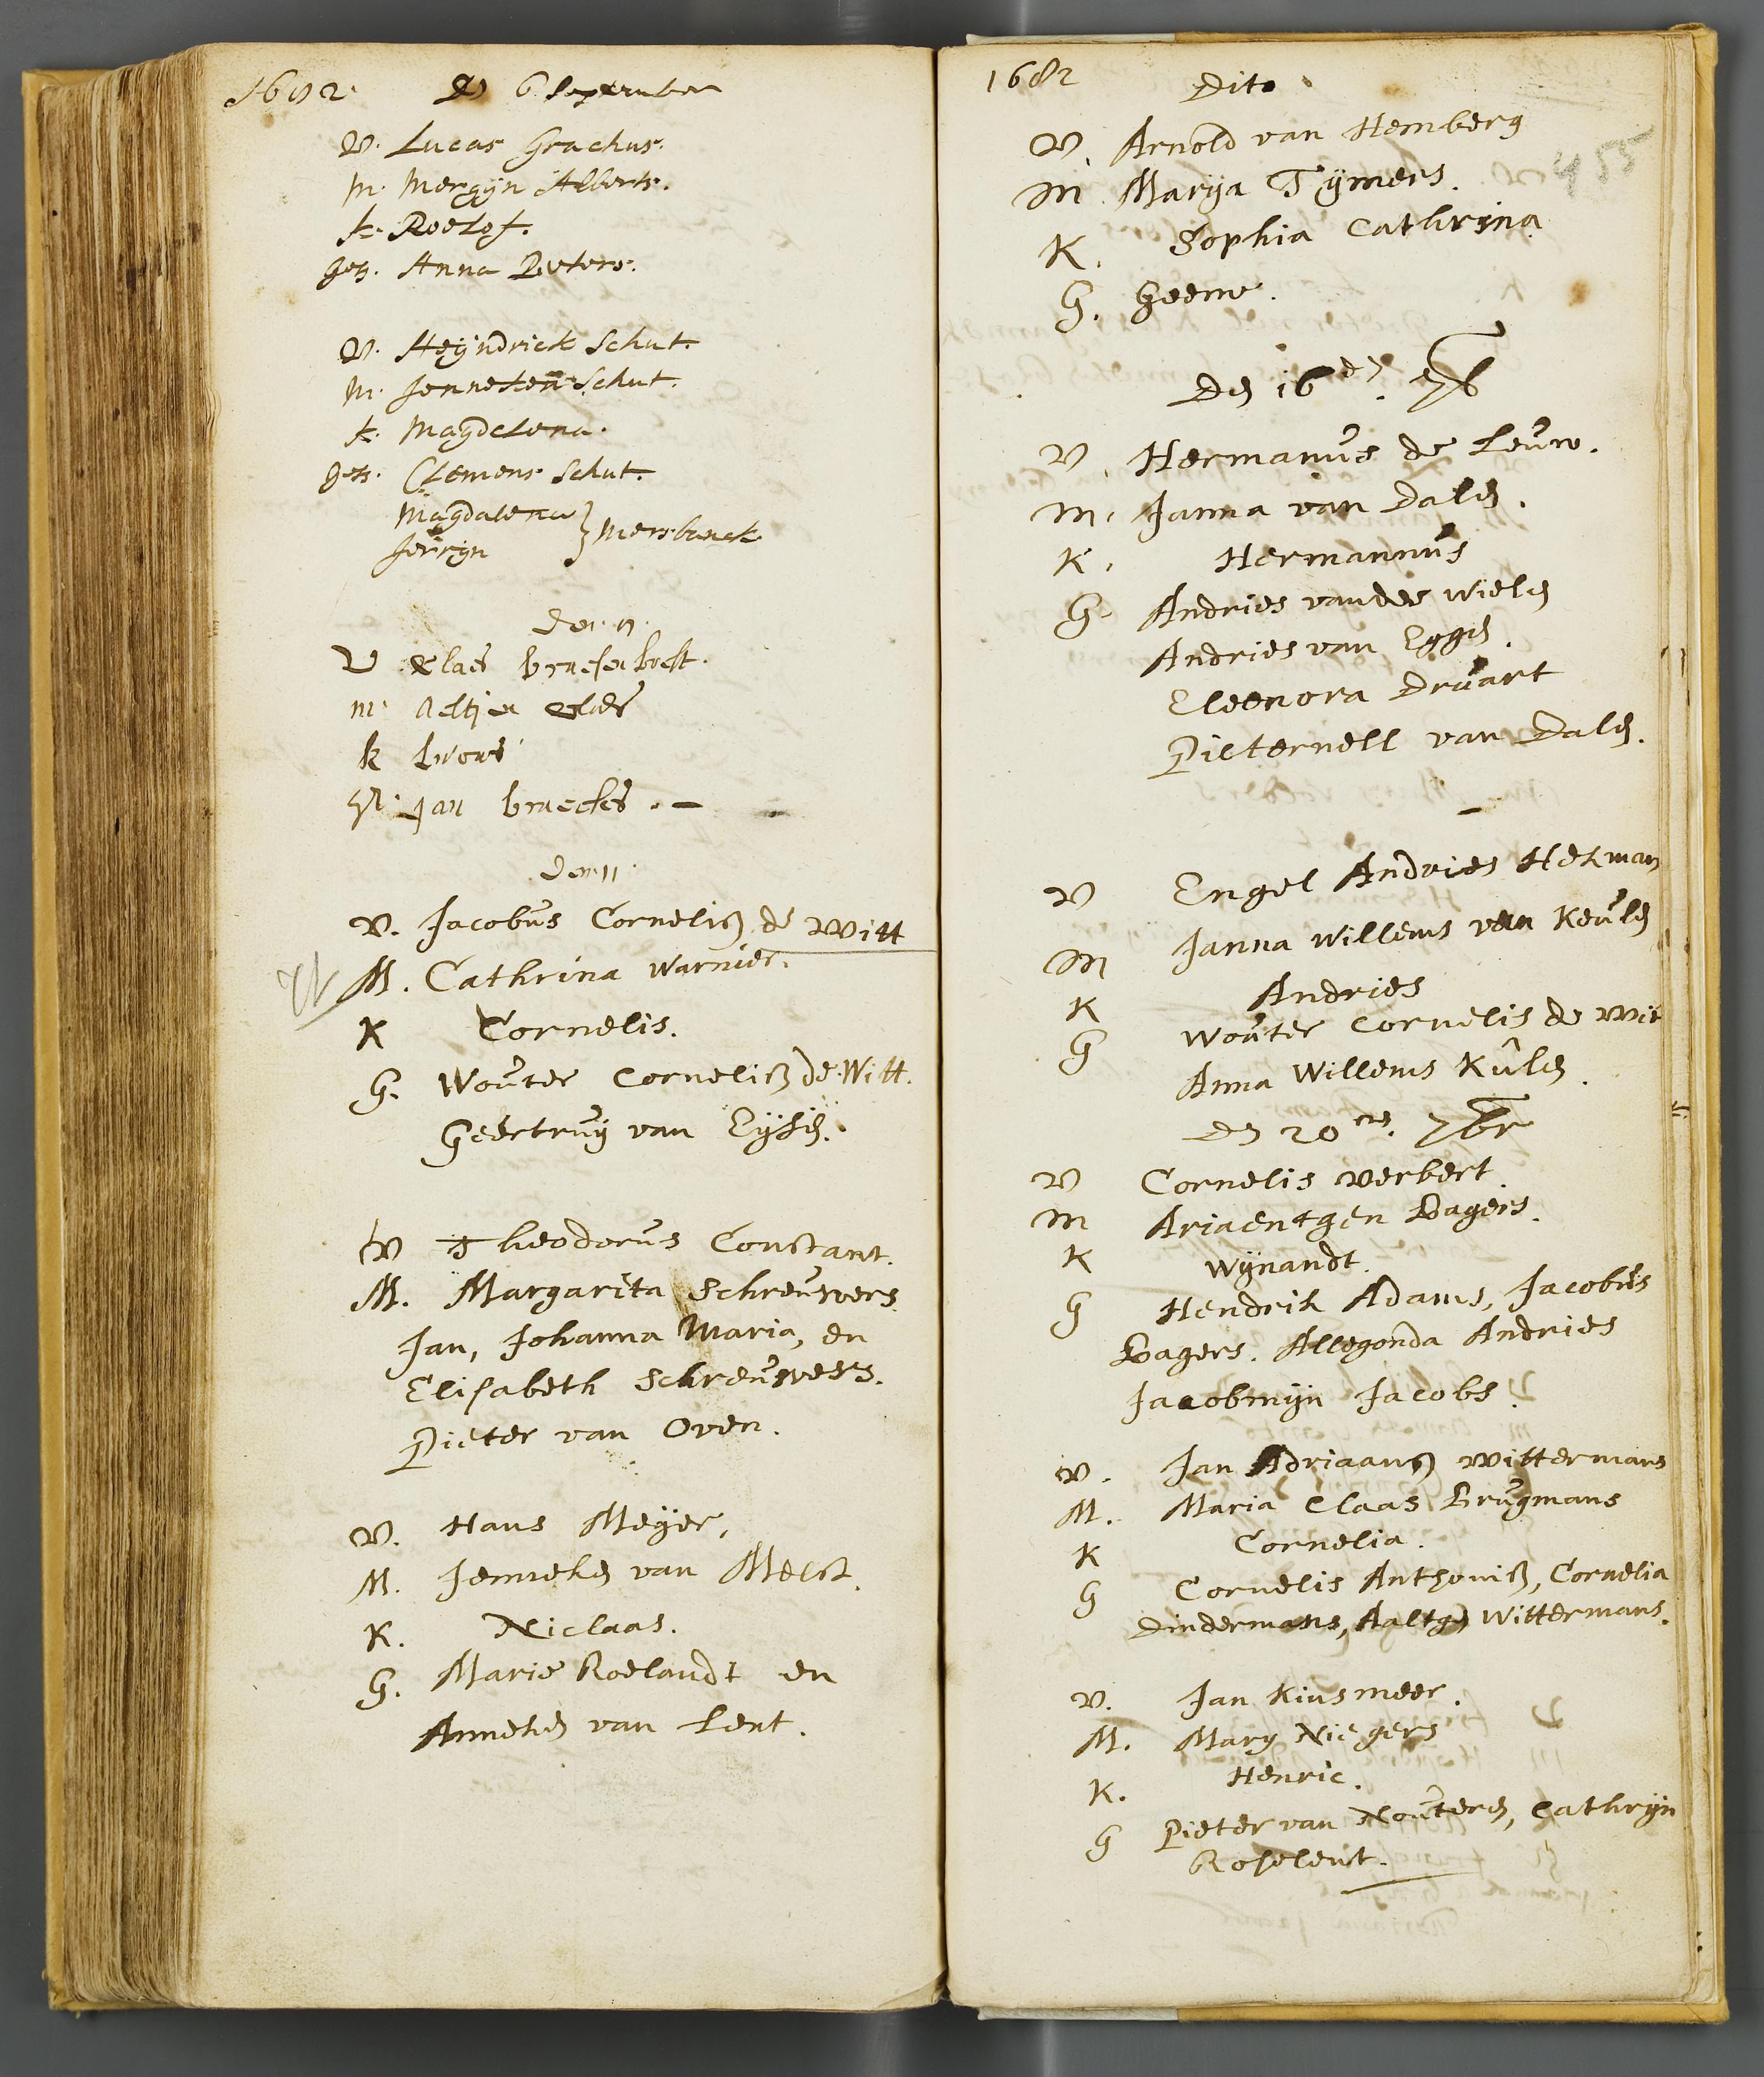 1682. Dn 6 September
V. Lucas Grachus.
m. Mergijn Alberts.
k. Roelof.
get. Anna Peeters.
V. Heÿndrick Schut.
m. Jenneken Schut.
k. Magdelena.
get. Clemens Schut.
Magdalena
Jerrijn } Mersbanck
den 9.
V Claes
m. Aeltjen Claes
k
Jan Braeckes . —
den 11.
V. Jacobus Cornelisz de Witt
M. Cathrina Warnier.
K Cornelis.
G. Wouter Cornelisz de Witt.
Geertruÿ van
V Theodorus Constant.
M. Margarita Schreuwers
Jan, Johanna Maria, en
Elisabeth Schreuwers.
Pieter van Oven.
V. Hans Meÿer,
M. Jenneken van Melst.
K. Niclaas.
G. Marie Roelandt en
Anneken van Lent.
1682 Dito
455
V. Arnold van Hemberg
M Marÿa Tÿmers.
K. Sophia Cathrina
G. Geene.
Den 16den 7b
V. Hermanus de Leuw.
m. Janna van Dalen.
K. Hermannus
G. Andries vander Wielen
Andries van Eggen.
Eleonora Druart
Pieternell van Dalen.
V Engel Andries Hekman
M Janna Willems van Keulen
K Andries
G Wouter Cornelis de Wit
Anna Willems Kûlen.
Den 20en 7br
V Cornelis Verbert
M Ariaentgen Bagers.
K Wÿnandt.
G Hendrik Adams, Jacobus
Bagers. Allegonda Andries
Jacobmÿn Jacobs.
V. Jan Adriaansz Wittermans
M. Maria Claas Brugmans
K Cornelia.
G Cornelis Anthonisz, Cornelia
Dindermans, Aaltgen Wittermans.
V. Jan Kinsmeer.
M. Mary Niegers
K. Henric.
G Pieter van Nouteren, Cathrÿn
Roselent.